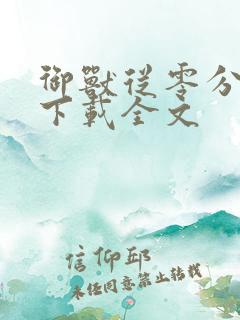 御獸從零分
下載全文
信仰邱
未经同意禁止转载